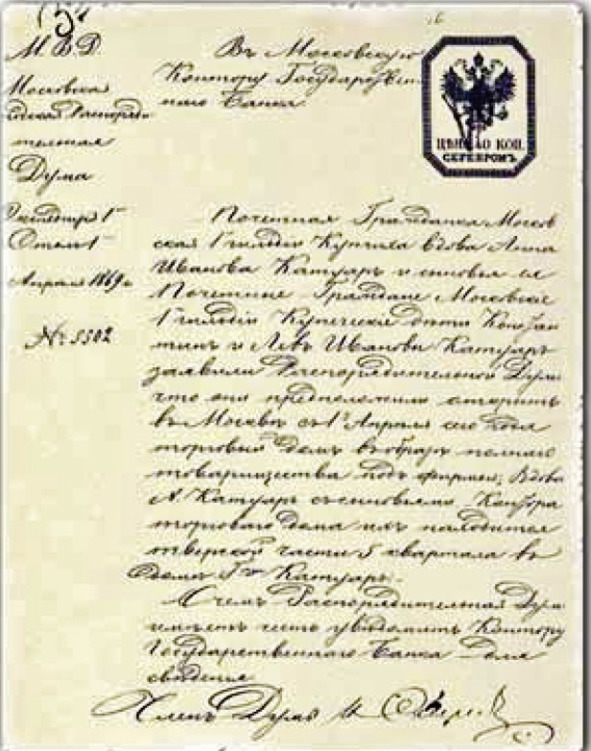 М. В. Д.
Московская
Городская Распоряди
тельная
Дума
Экспедиція 1
Отдѣлъ 1
Апрѣля 1869 г.
№ 5502
Въ Московскую
Контору Государствен
наго Банка.
ЦѢНА 40 КОП.
СЕРЕБРОМЪ.
Почетная Гражданка Москов
ская 1 гильдіи Купчиха вдова Анна
Иванова Катуаръ и сыновья ея
Почетные Граждане Московскіе
1 гильдіи Купеческіе дѣти Констан
тинъ и Левъ Ивановы Катуаръ
заявили Распорядительной Думѣ
что они предположили открыть
въ Москвѣ съ 1го Апрѣля сего года
торговый домъ въ образѣ полнаго
товарищества подъ фирмою: Вдова
А. Катуаръ съ сыновьями, Контора
торговаго дома ихъ находится
тверской части 5 квартала въ
домѣ Гг. Катуаръ.
О чемъ Распорядительная Дума
имѣетъ честь увѣдомить Контору
Государственнаго Банка для
свѣденія
Членъ Думы